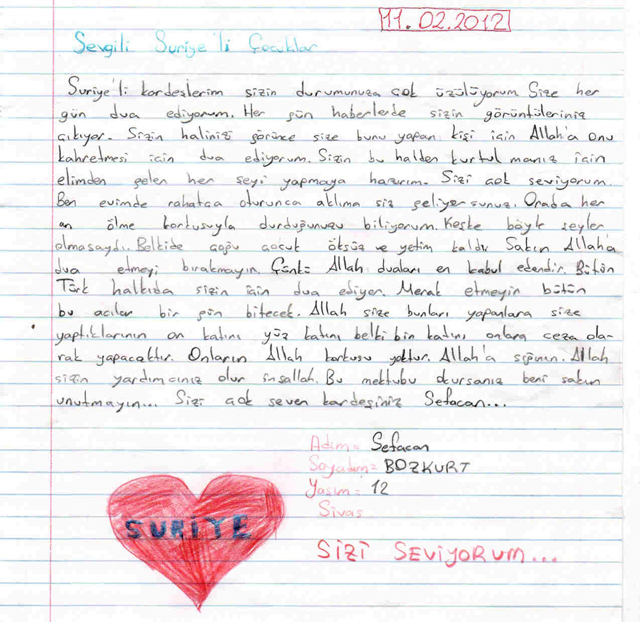 11.02.2012
Sevgili Suriye'li Çocuklar
Suriye'li kardeşlerim sizin durumunuza çok üzülüyorum Size her
gün dua ediyorum. Her gün haberlerde sizin görüntüleriniz
çıkıyor. Sizin halinizi görünce size bunu yapan kişi için Allah'a onu
kahretmesi için dua ediyorum. Sizin bu halden kurtulmanız için
elimden gelen her şeyi yapmaya hazırım. Sizi çok seviyorum.
Ben evimde rahatça oturunca aklıma siz geliyorsunuz. Orada her
an ölme korkusuyla durduğunuzu biliyorum. Keşke böyle şeyler
olmasaydı. Belkide çoğu çocuk öksüz ve yetim kaldı. Sakın Allah'a
dua etmeyi bırakmayın. Çünkü Allah duaları en kabul edendir. Bütün
Türk halkıda sizin için dua ediyor. Merak etmeyin bütün
bu acılar bir gün bitecek. Allah size bunları yapanlara size
yaptıklarının on katını yüz katını belki bin katını onlara ceza ola-
rak yapacaktır. Onların Allah korkusu yoktur. Allah'a sığının. Allah
sizin yardımcınız olur inşallah. Bu mektubu okursanız beni sakın
unutmayın... Sizi çok seven kardeşiniz Sefacan...
Adım= Sefacan
Soyadım= BOZKURT
Yaşım= 12
Sivas
SURİYE
SİZİ SEVİYORUM...